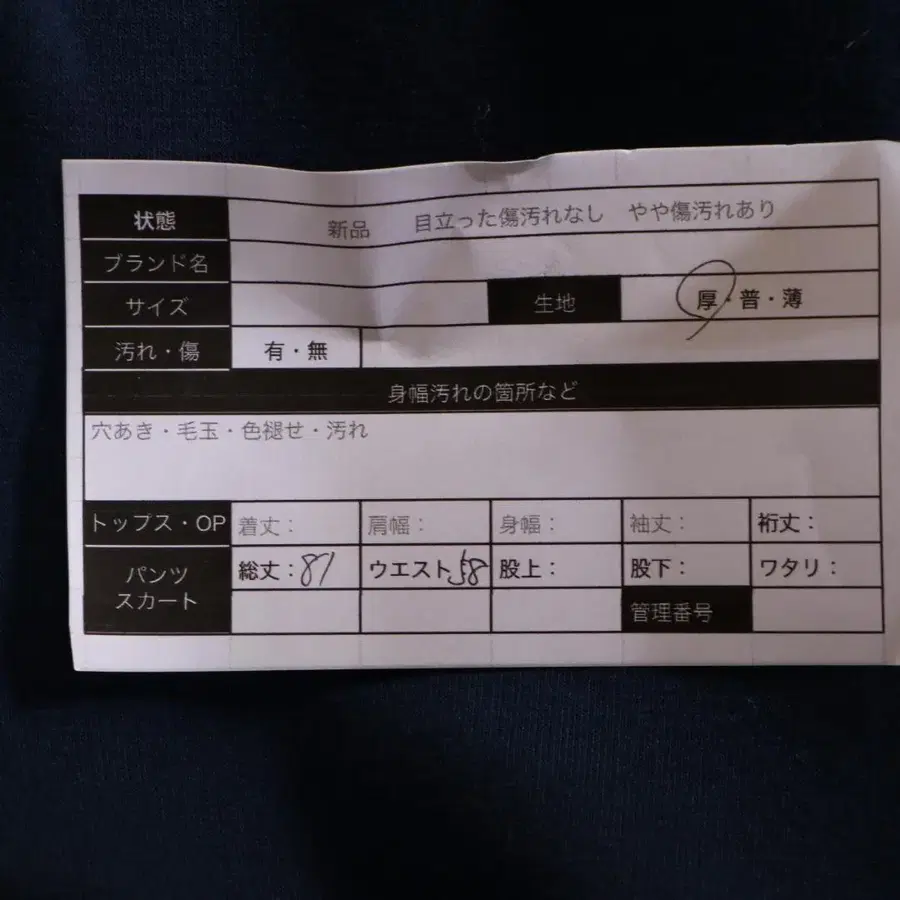 状態 新品 目立った傷汚れなし やや傷汚れあり
ブランド名
サイズ 生地 厚・普・薄
汚れ・傷 有・無
身幅汚れの箇所など
穴あき・毛玉・色褪せ・汚れ
トップス・OP 着丈： 肩幅： 身幅： 袖丈： 裄丈：
パンツ スカート 総丈：87 ウエスト58 股上： 股下： ワタリ：
管理番号